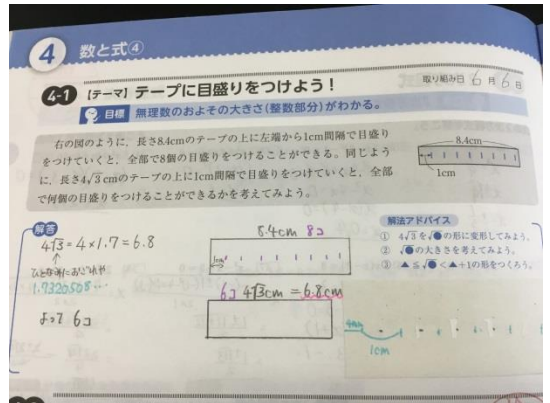 4 数と式④
4-1 【テーマ】テープに目盛りをつけよう！
取り組み日 6月6日
目標 無理数のおよその大きさ(整数部分)がわかる。
右の図のように，長さ8.4cmのテープの上に左端から1cm間隔で目盛り
をつけていくと，全部で8個の目盛りをつけることができる。同じよう
に，長さ4√3 cmのテープの上に1cm間隔で目盛りをつけていくと，全部
で何個の目盛りをつけることができるかを考えてみよう。
8.4cm
1cm
解答
4√3=4×1.7=6.8
↑
1.7320508…
よって 6コ
8.4cm 8コ
1cm
6コ 4√3cm=6.8cm
解法アドバイス
① 4√3を√●の形に変形してみよう。
② √●の大きさを考えてみよう。
③ ▲≦√●<▲+1の形をつくろう。
1cm